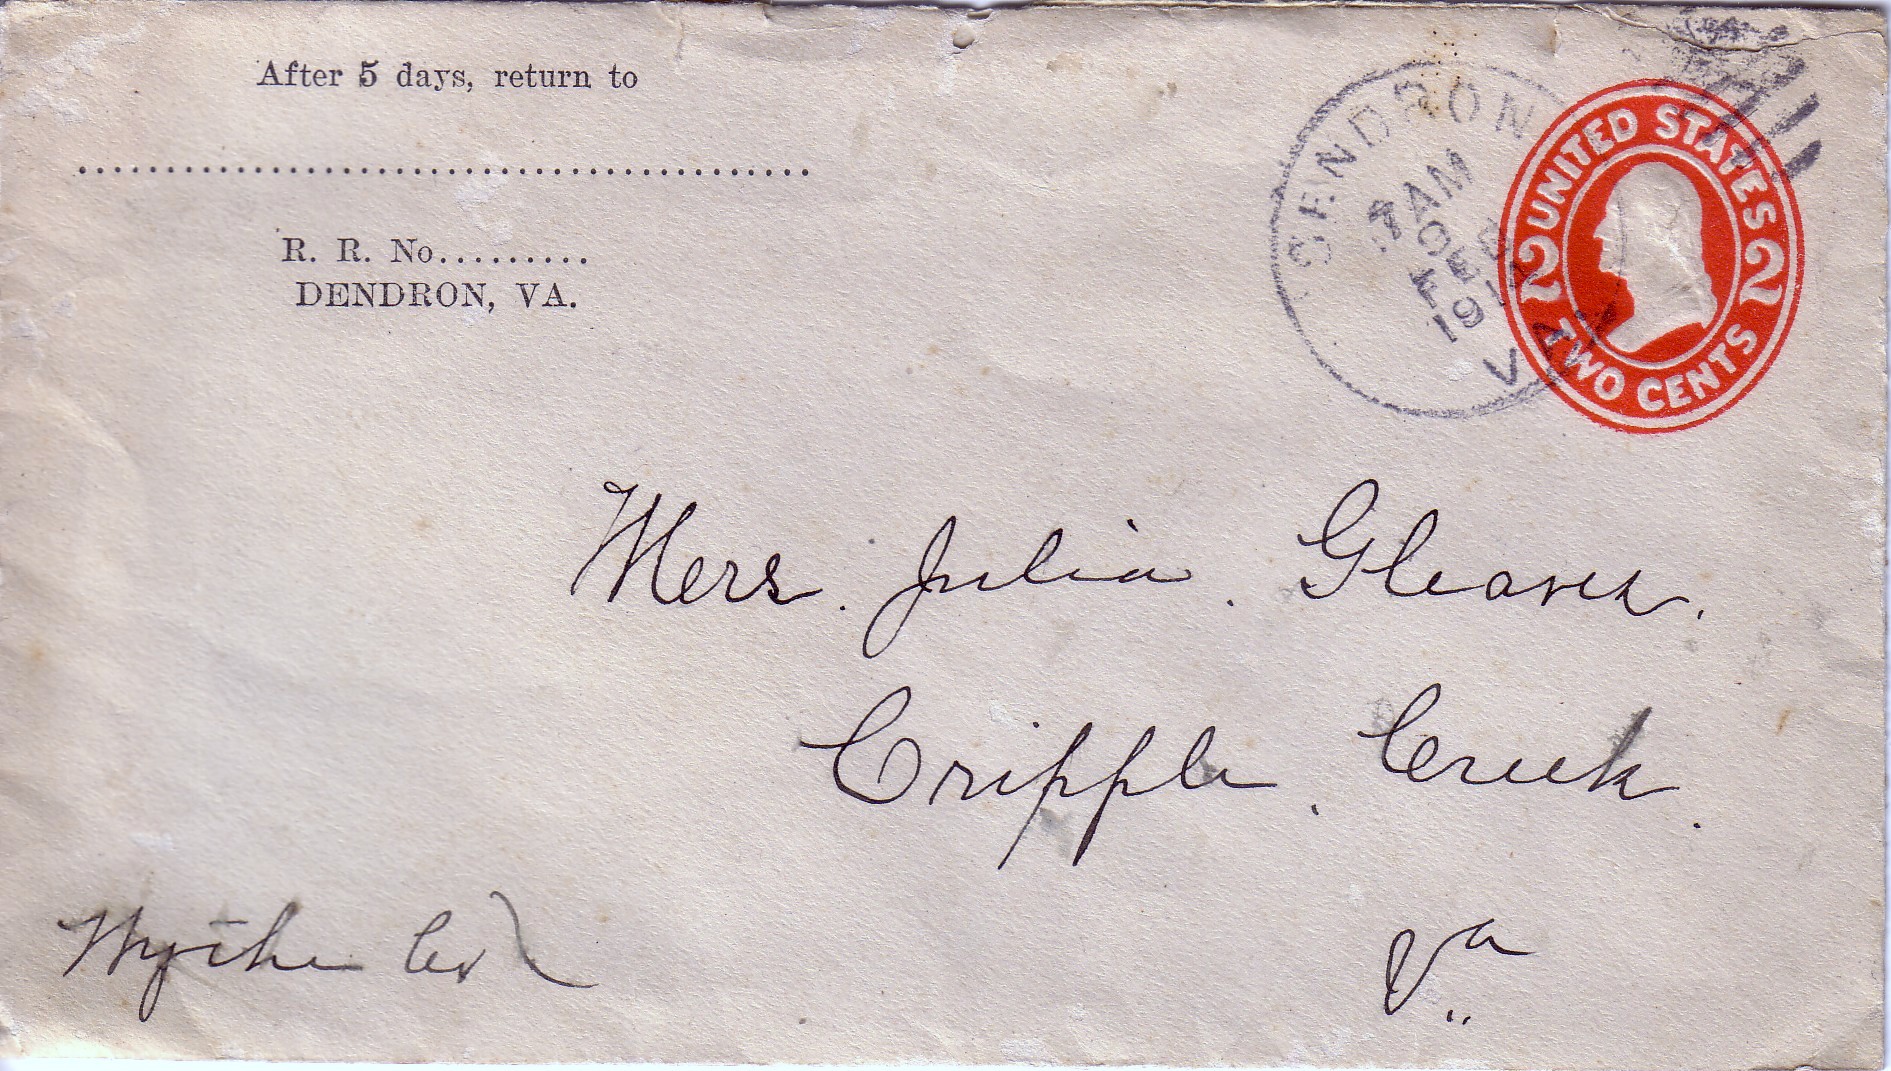 After 5 days, return to
R. R. No.........
DENDRON, VA.
DENDRON
7 AM
FEB
VA.
UNITED STATES
2 2
TWO CENTS
Mers. Julia. Gleaves.
Cripple. Creek.
Va
Wythe Co